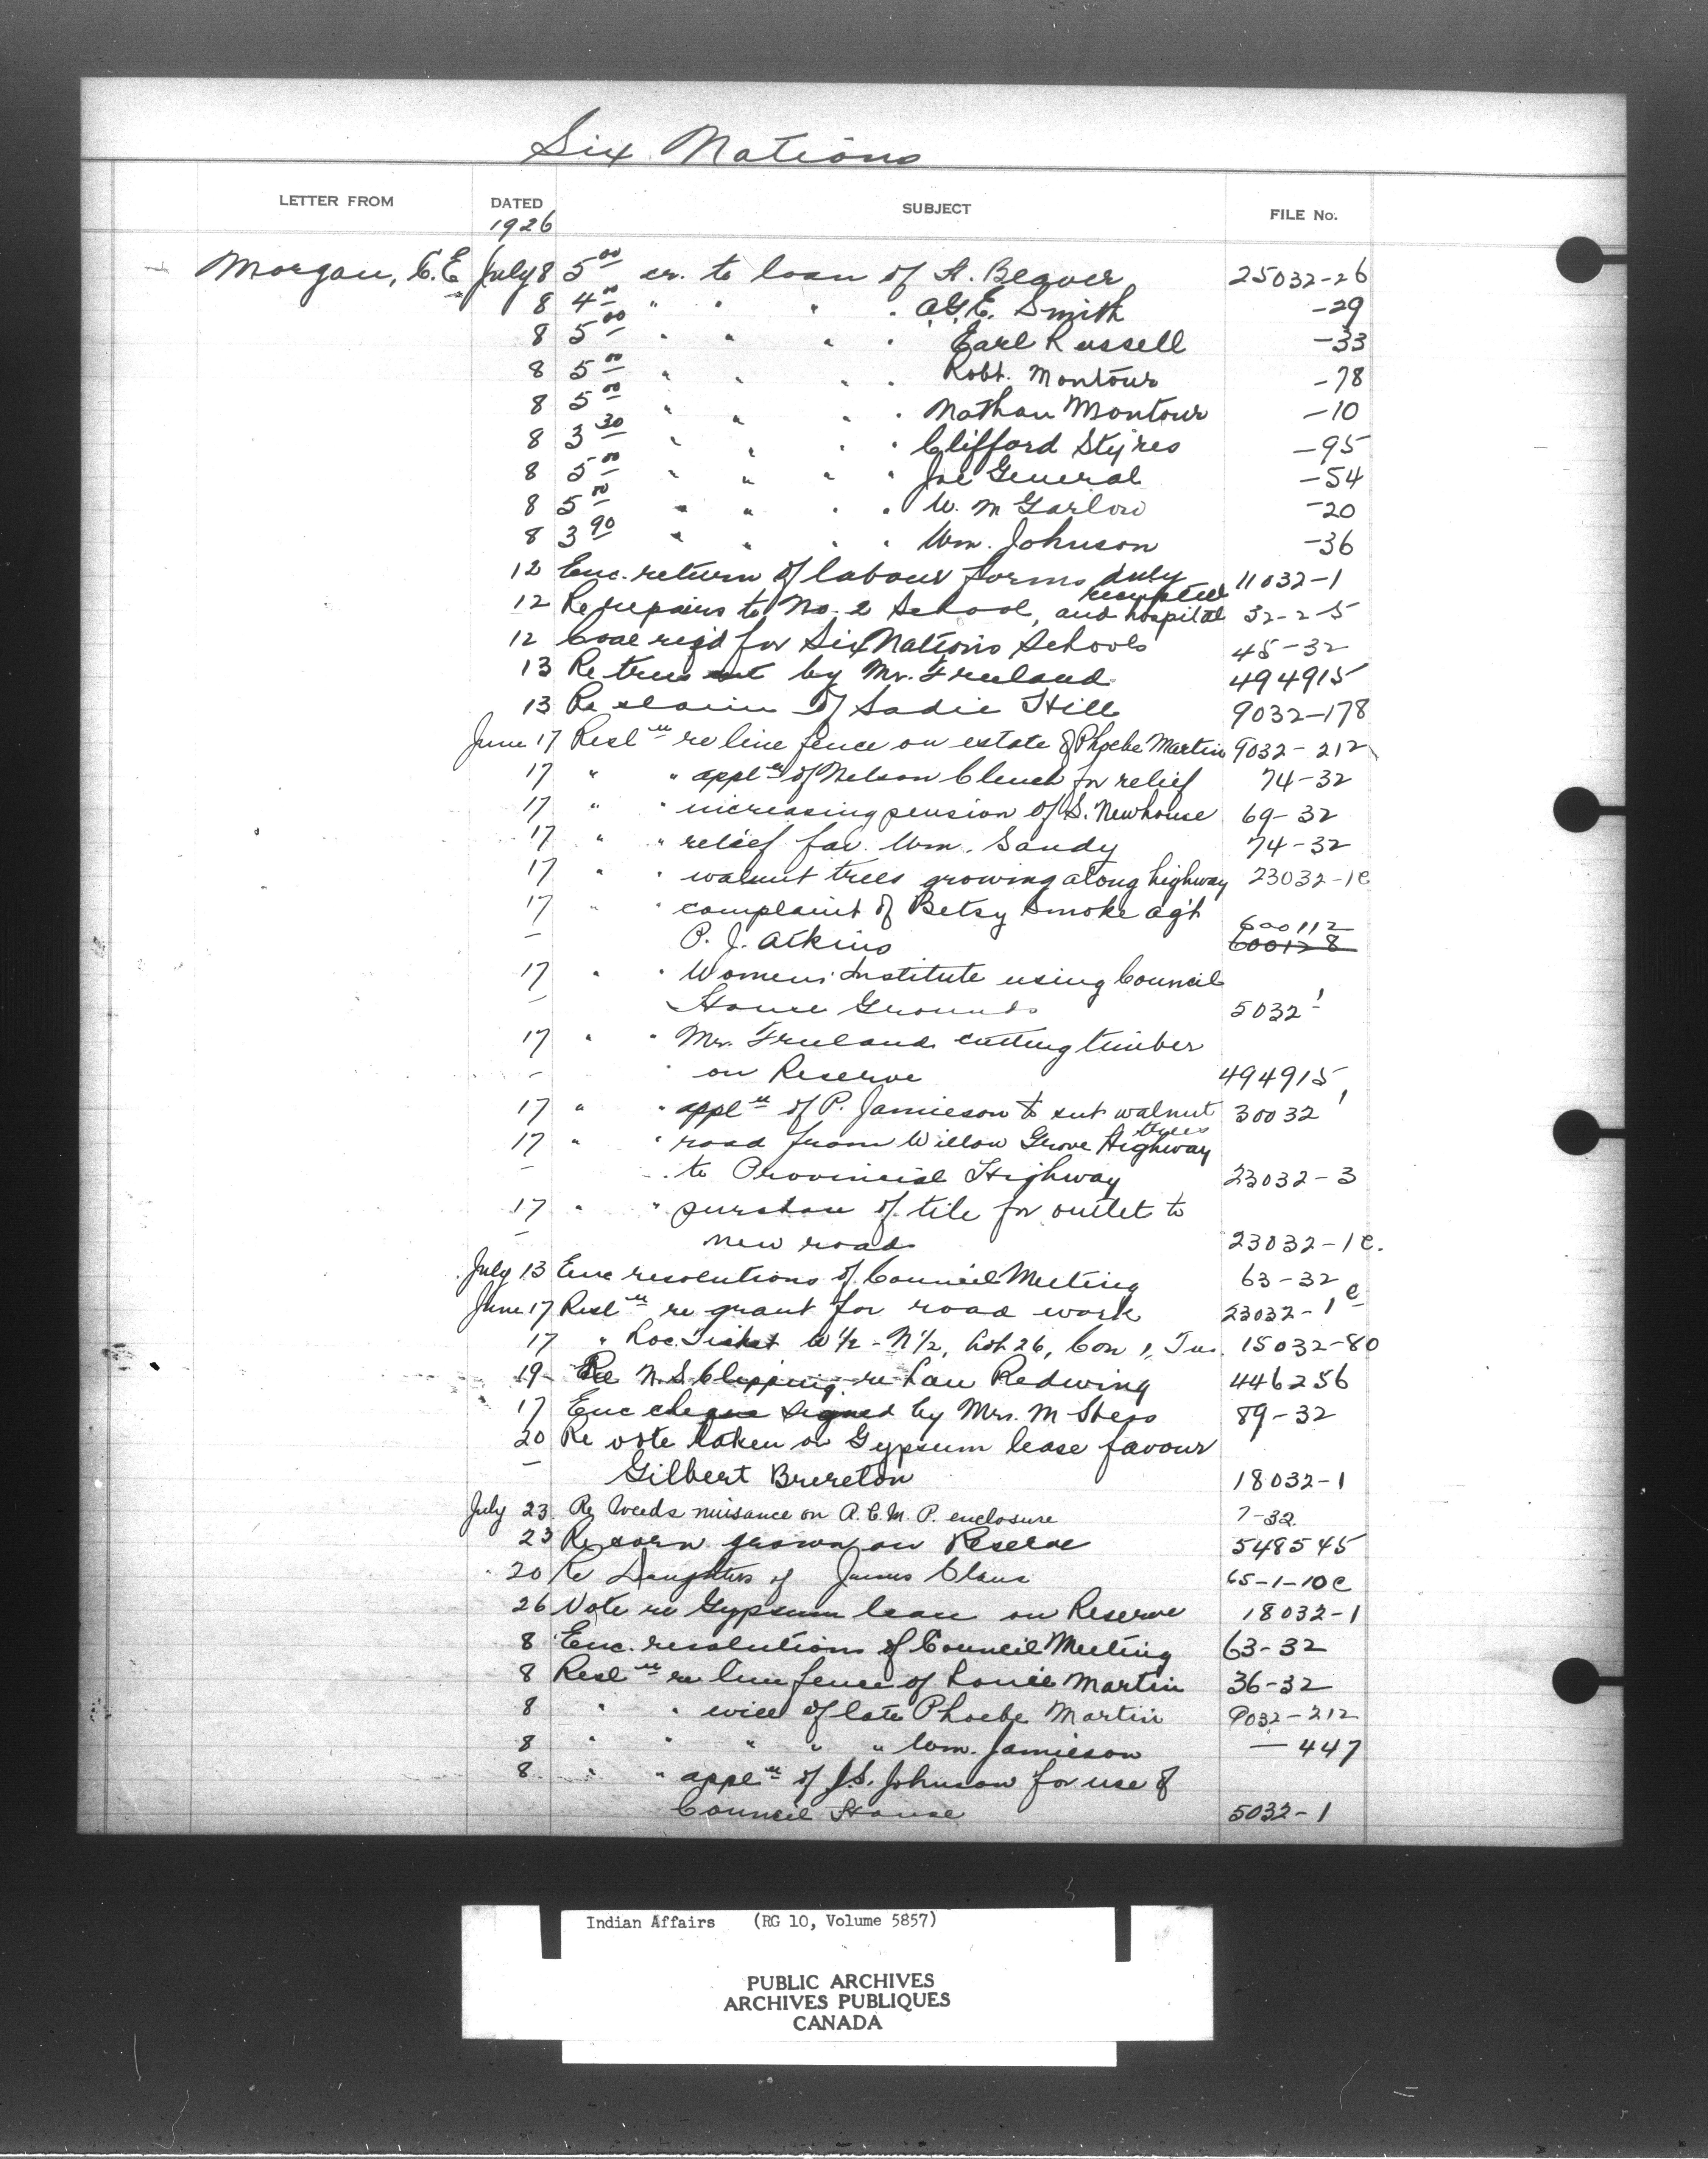 Six Nations
LETTER FROM DATED SUBJECT FILE No.
1926
Morgan, C.E. July 8 5 00 cr. to loan of A. Beaver 25032-26
8 4 00 " " " " A.G.E. Smith -29
8 5 00 " " " " Earl Russell -33
8 5 00 " " " " Robt. Montour -78
8 5 00 " " " " Nathan Montour -10
8 3 30 " " " " Clifford Styres -95
8 5 00 " " " " Joe General -54
8 5 00 " " " " W. M Garlow -20
8 3 90 " " " " Wm. Johnson -36
12 Enc. return of labour forms duly receipted 11032-1
12 Re repairs to No. 2 School, and hospital 32-2-5
12 Coal req'd for Six Nations Schools 45-32
13 Re trees cut by Mr. Freeland 494915
13 Re claim of Sadie Hill 9032-178
June 17 Resl'n re line fence on estate of Phoebe Martin 9032-212
17 " " appl'n of Nelson Clench for relief 74-32
17 " " increasing pension of S. Newhouse 69-32
17 " " relief for Wm. Sandy 74-32
17 " " walnut trees growing along highway 23032-1C
17 " " complaint of Betsy Smoke ag't
P. J. Atkins 600112 600128
17 " " Womens Institute using Council
House Grounds 5032-1
17 " " Mr. Freeland cutting timber
on Reserve 494915
17 " " appl'n of P. Jamieson to cut walnut trees 30032-1
17 " " road from Willow Grove Highway
to Provincial Highway 23032-3
17 " " purchase of tile for outlet to
new road 23032-1C.
July 13 Enc resolutions of Council Meeting 63-32
June 17 Resl'n re grant for road work 23032-1C
17 " Loc. Ticket W½-N½, Lot 26, Con 1, Tus. 15032-80
19 Re N.S. Clipping re Lau Redwing 446256
17 Enc cheque signed by Mrs. M 89-32
20 Re vote taken on Gypsum lease favour
Gilbert Brereton 18032-1
July 23 Re Weeds nuisance on R.C.M.P. enclosure 7-32
23 Re corn grown on Reserve 548545
20 Re Daughters of James Claus 65-1-10C
26 Vote re Gypsum lease on Reserve 18032-1
8 Enc. resolutions of Council Meeting 63-32
8 Resl'n re line fence of Louie Martin 36-32
8 " " will of late Phoebe Martin 9032-212
8 " " " " " Wm. Jamieson -447
8 " " appl'n of J.S. Johnson for use of
Council House 5032-1
Indian Affairs (RG 10, Volume 5857)
PUBLIC ARCHIVES
ARCHIVES PUBLIQUES
CANADA